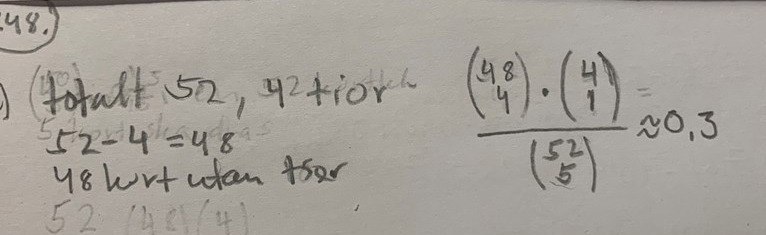 48.)
) totalt 52, 4 tior
52-4=48
48 kort utan
\frac{\binom{48}{4} \cdot \binom{4}{1}}{\binom{52}{5}} ≈ 0,3
52 (48)(4)